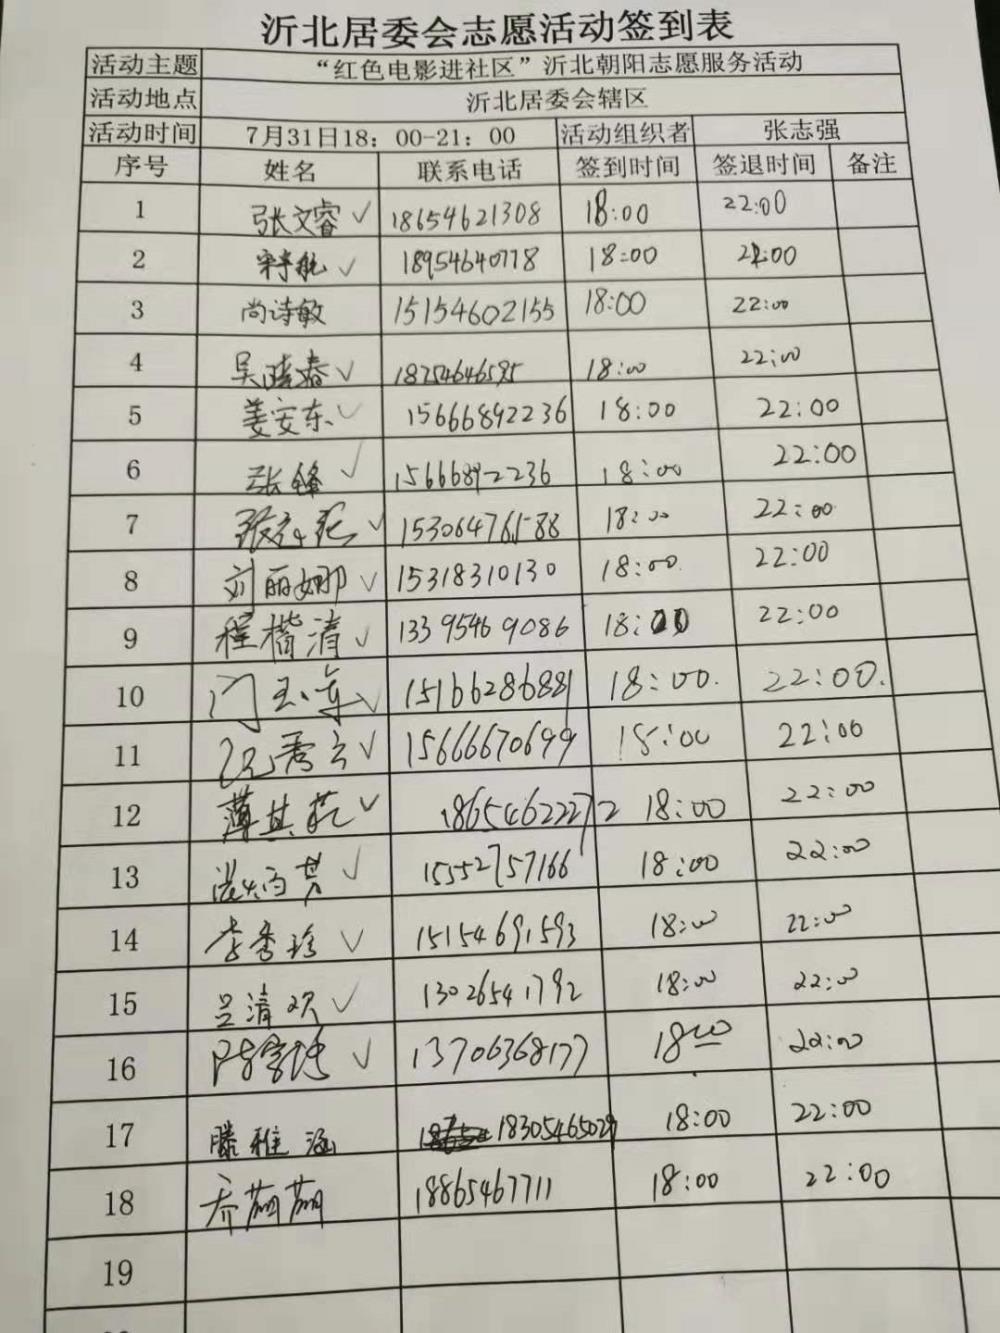 沂北居委会志愿活动签到表
活动主题 “红色电影进社区”沂北朝阳志愿服务活动
活动地点 沂北居委会辖区
活动时间 7月31日18：00-21：00 活动组织者 张志强
序号 姓名 联系电话 签到时间 签退时间 备注
1 张文睿 ✓ 18654621308 18:00 22:00
2 ✓ 18954640778 18:00 22:00
3 尚诗敏 15154602155 18:00 22:00
4 吴晓春 ✓ 18254646595 18:00 22:00
5 姜安东 ✓ 15666892236 18:00 22:00
6 张锋 ✓ 15666892236 18:00 22:00
7 ✓ 15306476588 18:00 22:00
8 刘丽娜 ✓ 15318310130 18:00 22:00
9 程楷清 ✓ 13395469086 18:00 22:00
10 门玉车 ✓ 15166286881 18:00. 22:00.
11 ✓ 15666670699 18:00 22:00
12 薄其花 ✓ 18654622272 18:00 22:00
13 ✓ 15552757166 18:00 22:00
14 李秀珍 ✓ 15154691593 18:00 22:00
15 吕清欢 ✓ 13026541792 18:00 22:00
16 ✓ 13706368177 1800 22:00
17 滕雅涵 18305465029 18:00 22:00
18 乔萌萌 18865467711 18:00 22:00
19